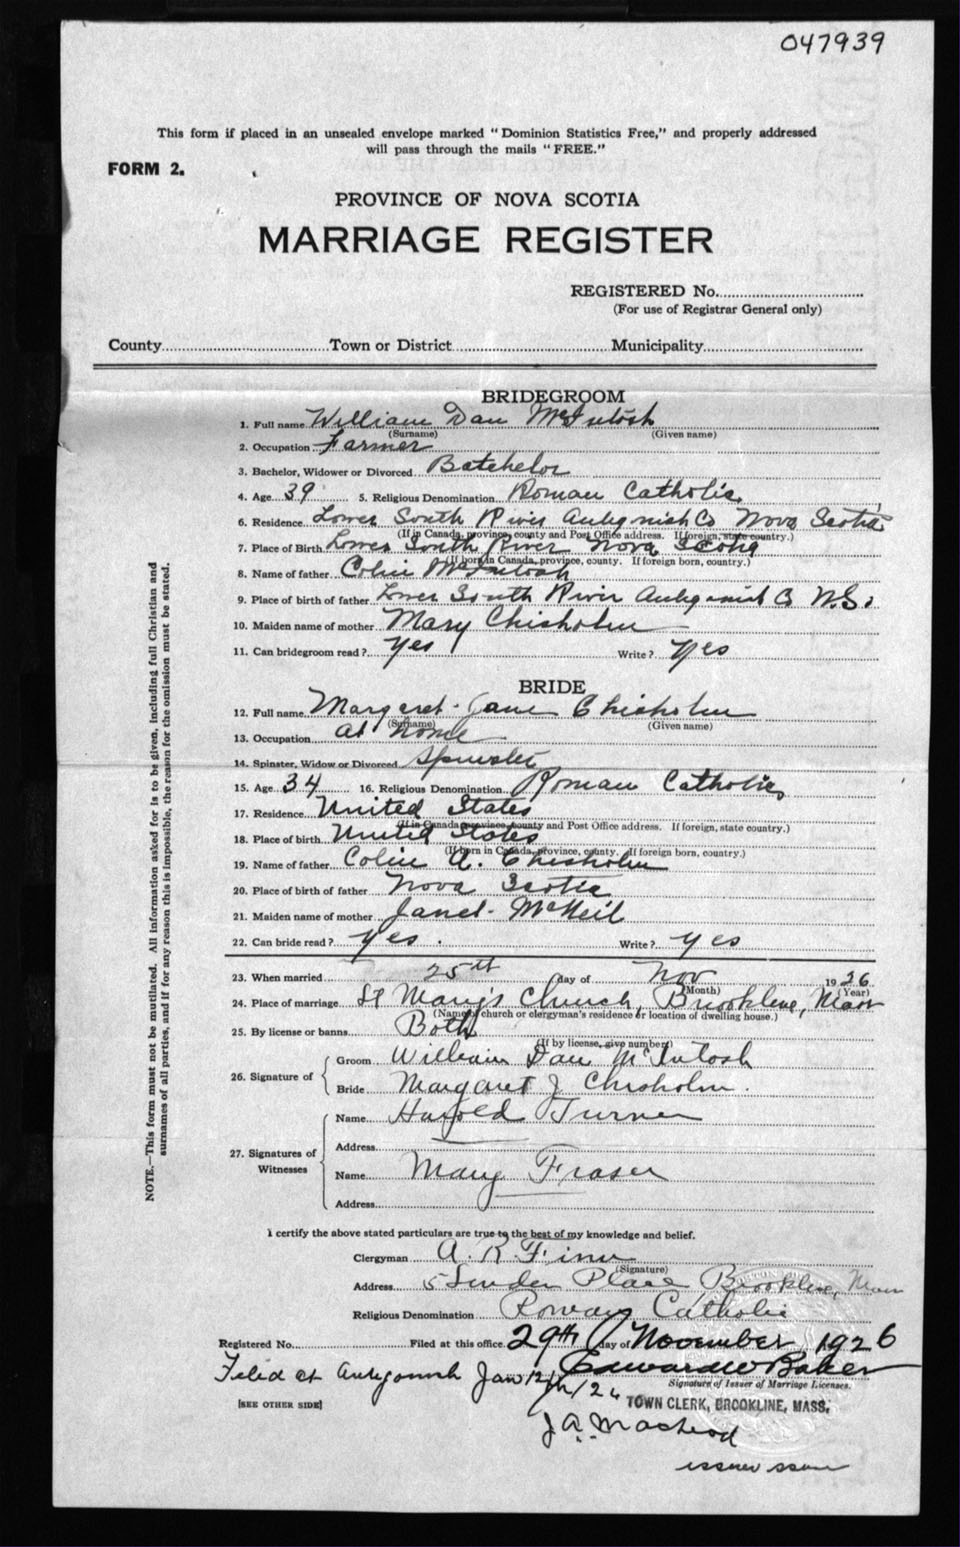 047939
This form if placed in an unsealed envelope marked "Dominion Statistics Free," and properly addressed
will pass through the mails "FREE."
FORM 2.
PROVINCE OF NOVA SCOTIA
MARRIAGE REGISTER
REGISTERED No.
(For use of Registrar General only)
County Town or District Municipality
BRIDEGROOM
1. Full name William Dan McIntosh
(Surname) (Given name)
2. Occupation Farmer
3. Bachelor, Widower or Divorced Batchelor
4. Age 39 5. Religious Denomination Roman Catholic
6. Residence Lower South River Antigonish Co Nova Scotia
(If in Canada, province, county and Post Office address. If foreign, state country.)
7. Place of Birth Lower South River Nova Scotia
(If born in Canada, province, county. If foreign born, country.)
8. Name of father Colin McIntosh
9. Place of birth of father Lower South River Antigonish Co N.S.
10. Maiden name of mother Mary Chisholm
11. Can bridegroom read? Yes Write? Yes
BRIDE
12. Full name Margaret Jane Chisholm
(Surname) (Given name)
13. Occupation at home
14. Spinster, Widow or Divorced Spinster
15. Age 34 16. Religious Denomination Roman Catholic
17. Residence United States
(If in Canada province, county and Post Office address. If foreign, state country.)
18. Place of birth United States
(If born in Canada, province, county. If foreign born, country.)
19. Name of father Colin A. Chisholm
20. Place of birth of father Nova Scotia
21. Maiden name of mother Janet McNeil
22. Can bride read? Yes. Write? Yes
23. When married 25th day of Nov 1926
(Month) (Year)
24. Place of marriage St Mary's Church, Brookline, Mass
(Name of church or clergyman's residence or location of dwelling house.)
25. By license or banns Both
(If by license, give number)
26. Signature of
Groom William Dan McIntosh
Bride Margaret J Chisholm.
27. Signatures of Witnesses
Name Harold Turner
Address
Name Mary Fraser
Address
I certify the above stated particulars are true to the best of my knowledge and belief.
Clergyman A. R. Finn
(Signature)
Address 5 Linden Place Brookline, Mass
Religious Denomination Roman Catholic
Registered No. Filed at this office 29th day of November 1926
Edward W Baker
Signature of Issuer of Marriage Licenses.
Filed at Antigonish Jan 12
[SEE OTHER SIDE]
TOWN CLERK, BROOKLINE, MASS.
J A. MacLeod
issuer
NOTE.—This form must not be mutilated. All information asked for is to be given, including full Christian and
surnames of all parties, and if for any reason this is impossible, the reason for the omission must be stated.